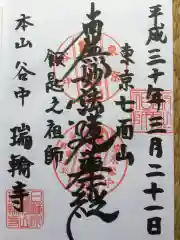 平成三十年三月二十一日
東京七面山
南無妙法蓮華経
飯匙之祖師
本山谷中瑞輪寺